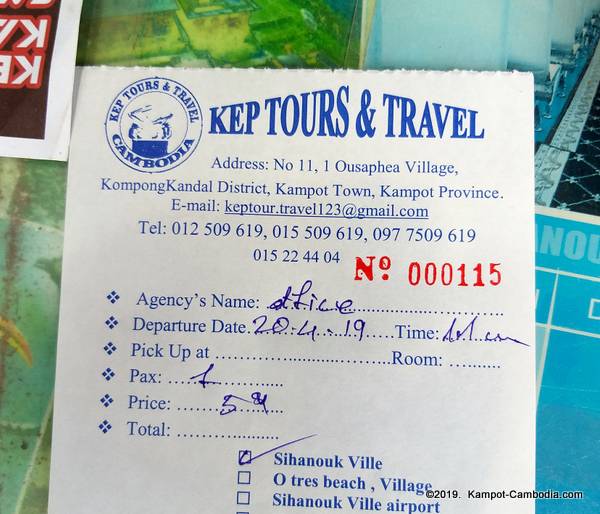 KEP TOURS & TRAVEL
CAMBODIA
KEP TOURS & TRAVEL
Address: No 11, 1 Ousaphea Village,
KompongKandal District, Kampot Town, Kampot Province.
E-mail: keptour.travel123@gmail.com
Tel: 012 509 619, 015 509 619, 097 7509 619
015 22 44 04
Nº 000115
❖ Agency's Name: office
❖ Departure Date. 20.4.19 Time:
❖ Pick Up at .................................. Room: .........
❖ Pax: 1
❖ Price: 5$
❖ Total: .....................
☑ Sihanouk Ville
☐ O tres beach , Village
☐ Sihanouk Ville airport
©2019. Kampot-Cambodia.com